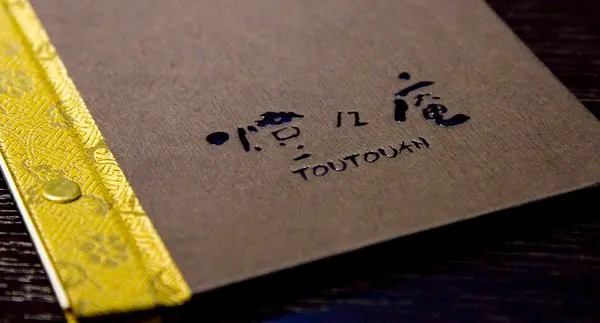 燈々庵
TOUTOUAN